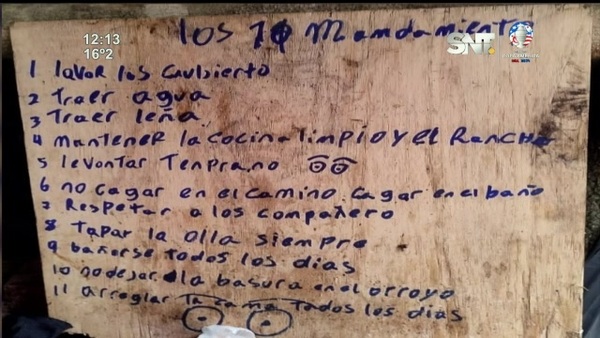 12:13
16º2
SNT
los 10 Mamdamiento
1 lavar los cuvbierto
2 traer agua
3 traer leña
4 mantener la cocina limpio y el Rancho
5 levontar Temprano
6 no cagar en el camino cagar en el baño
7 Respetar a los compañero
8 tapar la olla siempre
9 bañarse todos los dias
10 no dejar la basura en el arroyo
11 arreglar la cama todos los dias